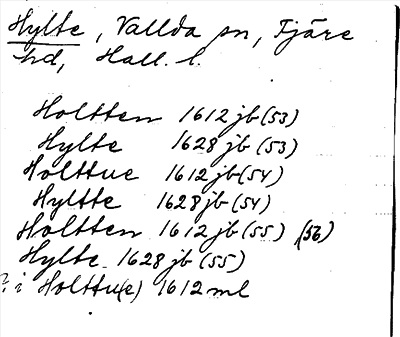 Hylte, Vallda sn, Fjäre
hd, Hall. l.
Holtten 1612 jb (53)
Hylte 1628 jb (53)
Holttue 1612 jb (54)
Hyltte 1628 jb (54)
Holtten 1612 jb (55) (56)
Hylte 1628 jb (55)
?: i Holttu(e) 1612 ml